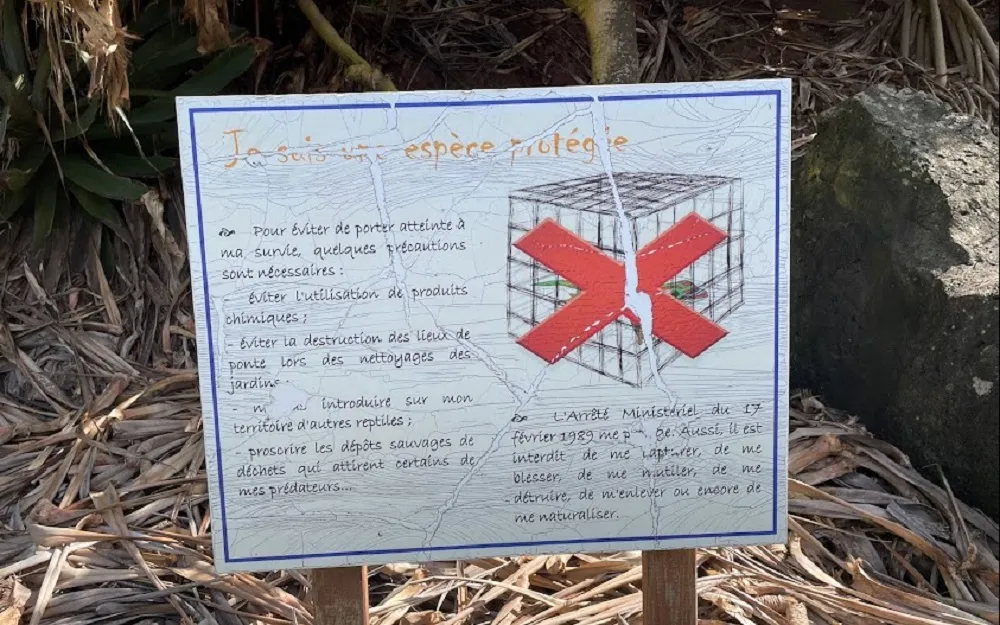 Je suis une espèce protégée
Pour éviter de porter atteinte à
ma survie, quelques précautions
sont nécessaires :
- éviter l'utilisation de produits
chimiques ;
- éviter la destruction des lieux de
ponte lors des nettoyages des
jardins
- introduire sur mon
territoire d'autres reptiles ;
- proscrire les dépôts sauvages de
déchets qui attirent certains de
mes prédateurs...
L'Arrêté Ministériel du 17
février 1989 me protège. Aussi, il est
interdit de me capturer, de me
blesser, de me mutiler, de me
détruire, de m'enlever ou encore de
me naturaliser.